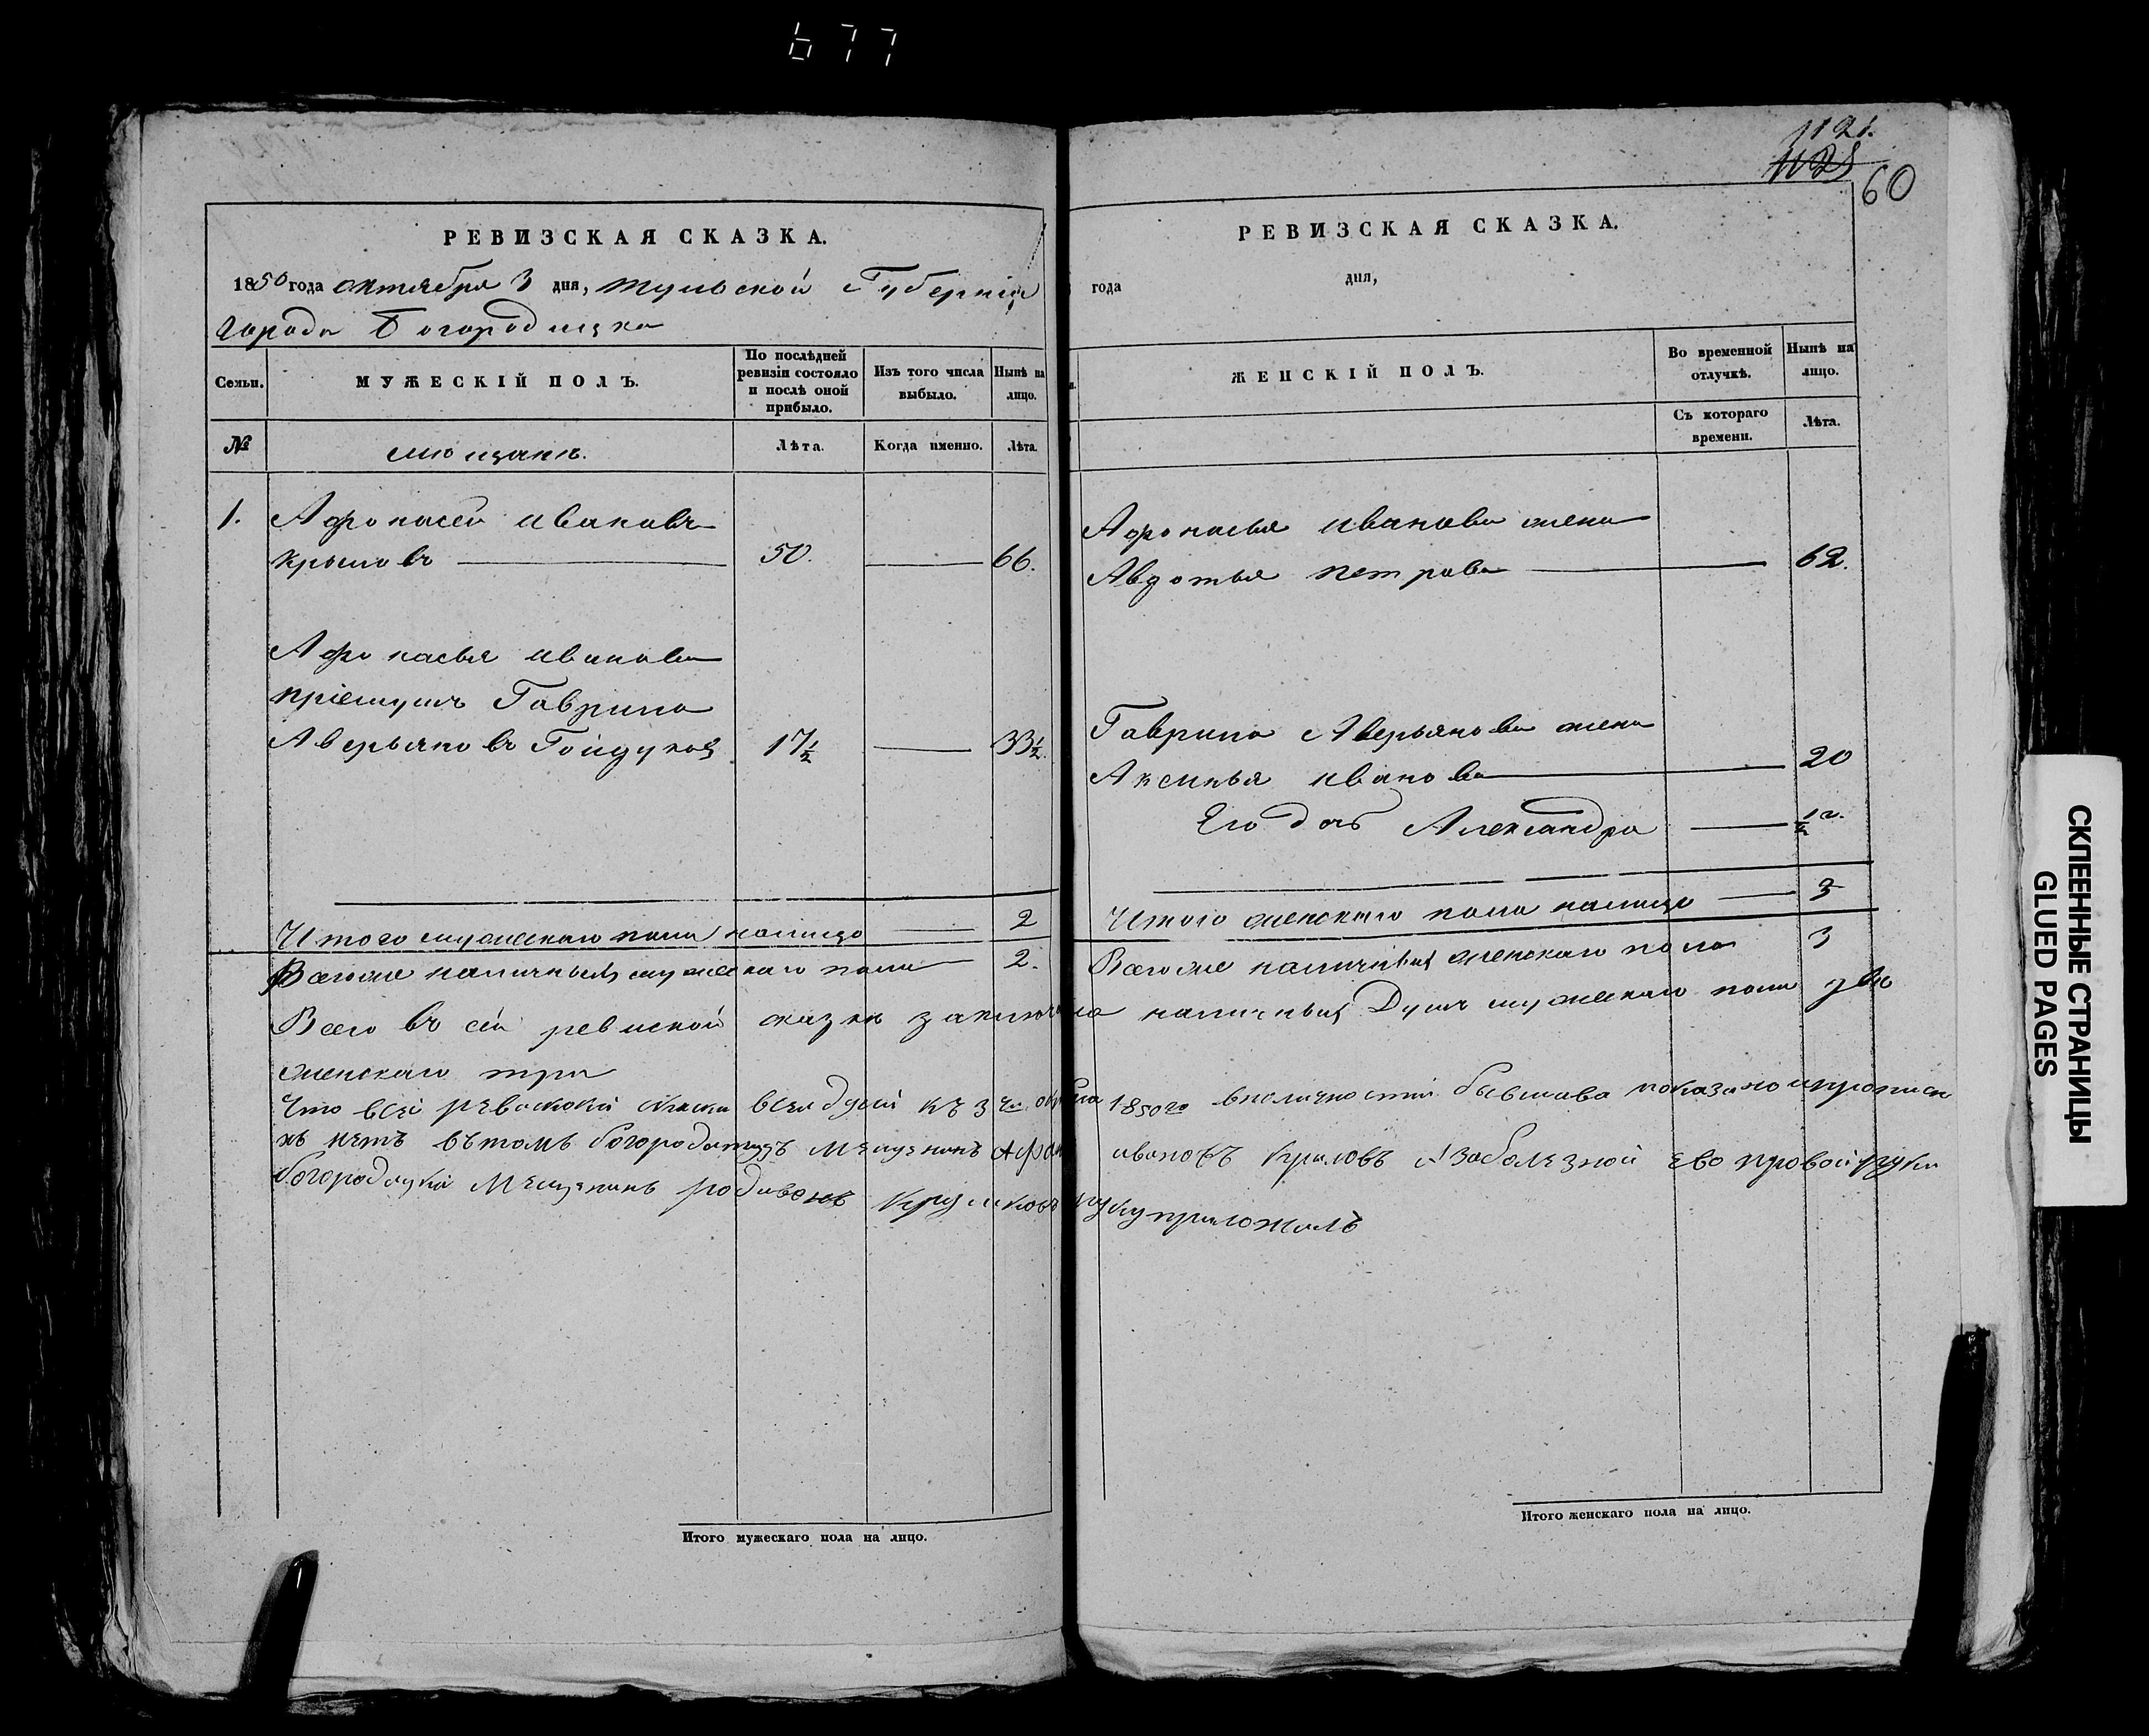 677
1121.
60
РЕВИЗСКАЯ СКАЗКА.
1850 года октября 3 дня, тульской Губерніи
города Богородицка
Семьи.
МУЖЕСКІЙ ПОЛЪ.
По послѣдней ревизіи состояло и послѣ оной прибыло.
Изъ того числа выбыло.
Нынѣ на лицо.
№
мещанъ.
Лѣта.
Когда именно.
Лѣта.
1. Афонасей ивановъ
крыловъ 50. 66.
Афонасья иванова
пріемушъ Гаврила
Аверьяновъ 17½ 33½.
Итого мужескаго пола налицо 2
Всего же наличныхъ мужескаго пола 2.
РЕВИЗСКАЯ СКАЗКА.
года дня,
ЖЕНСКІЙ ПОЛЪ.
Во временной отлучкѣ.
Нынѣ на лицо.
Съ котораго времени.
Лѣта.
Афонасья иванова жена
Авдотья петрова 62.
Гаврила Аверьянова жена
Аксинья иванова 20
Его дочь Александра ½ г.
Итого женскаго пола налицо 3
Всего же наличныхъ женскаго пола 3
Всего въ сей ревиской сказкѣ заключено наличныхъ Душъ мужескаго пола две
женскаго три
Что всей ревиской къ 3 1850 го бывшева показано
нѣтъ вътомъ мещенинъ Афон ивановъ крыловъ азаболезной ево
мещенинъ родивонъ руку приложилъ
Итого мужескаго пола на лицо.
Итого женскаго пола на лицо.
СКЛЕЕННЫЕ СТРАНИЦЫ
GLUED PAGES